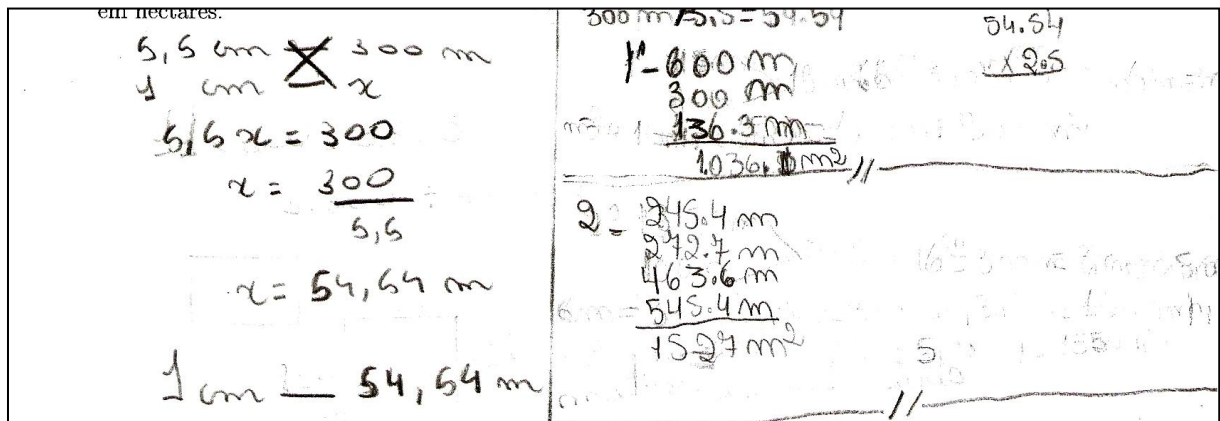 em hectares.
5,5 cm 300 m
1 cm x
5,5 x = 300
x = 300
5,5
x = 54,54 m
1 cm — 54,54 m
300 m/5,5 = 54.54
1- 600 m
300 m
136.3 m
1.036. m2 //
54.54
x 2.5
2- 245.4 m
272.7 m
463.6 m
545.4 m
1527 m2
//